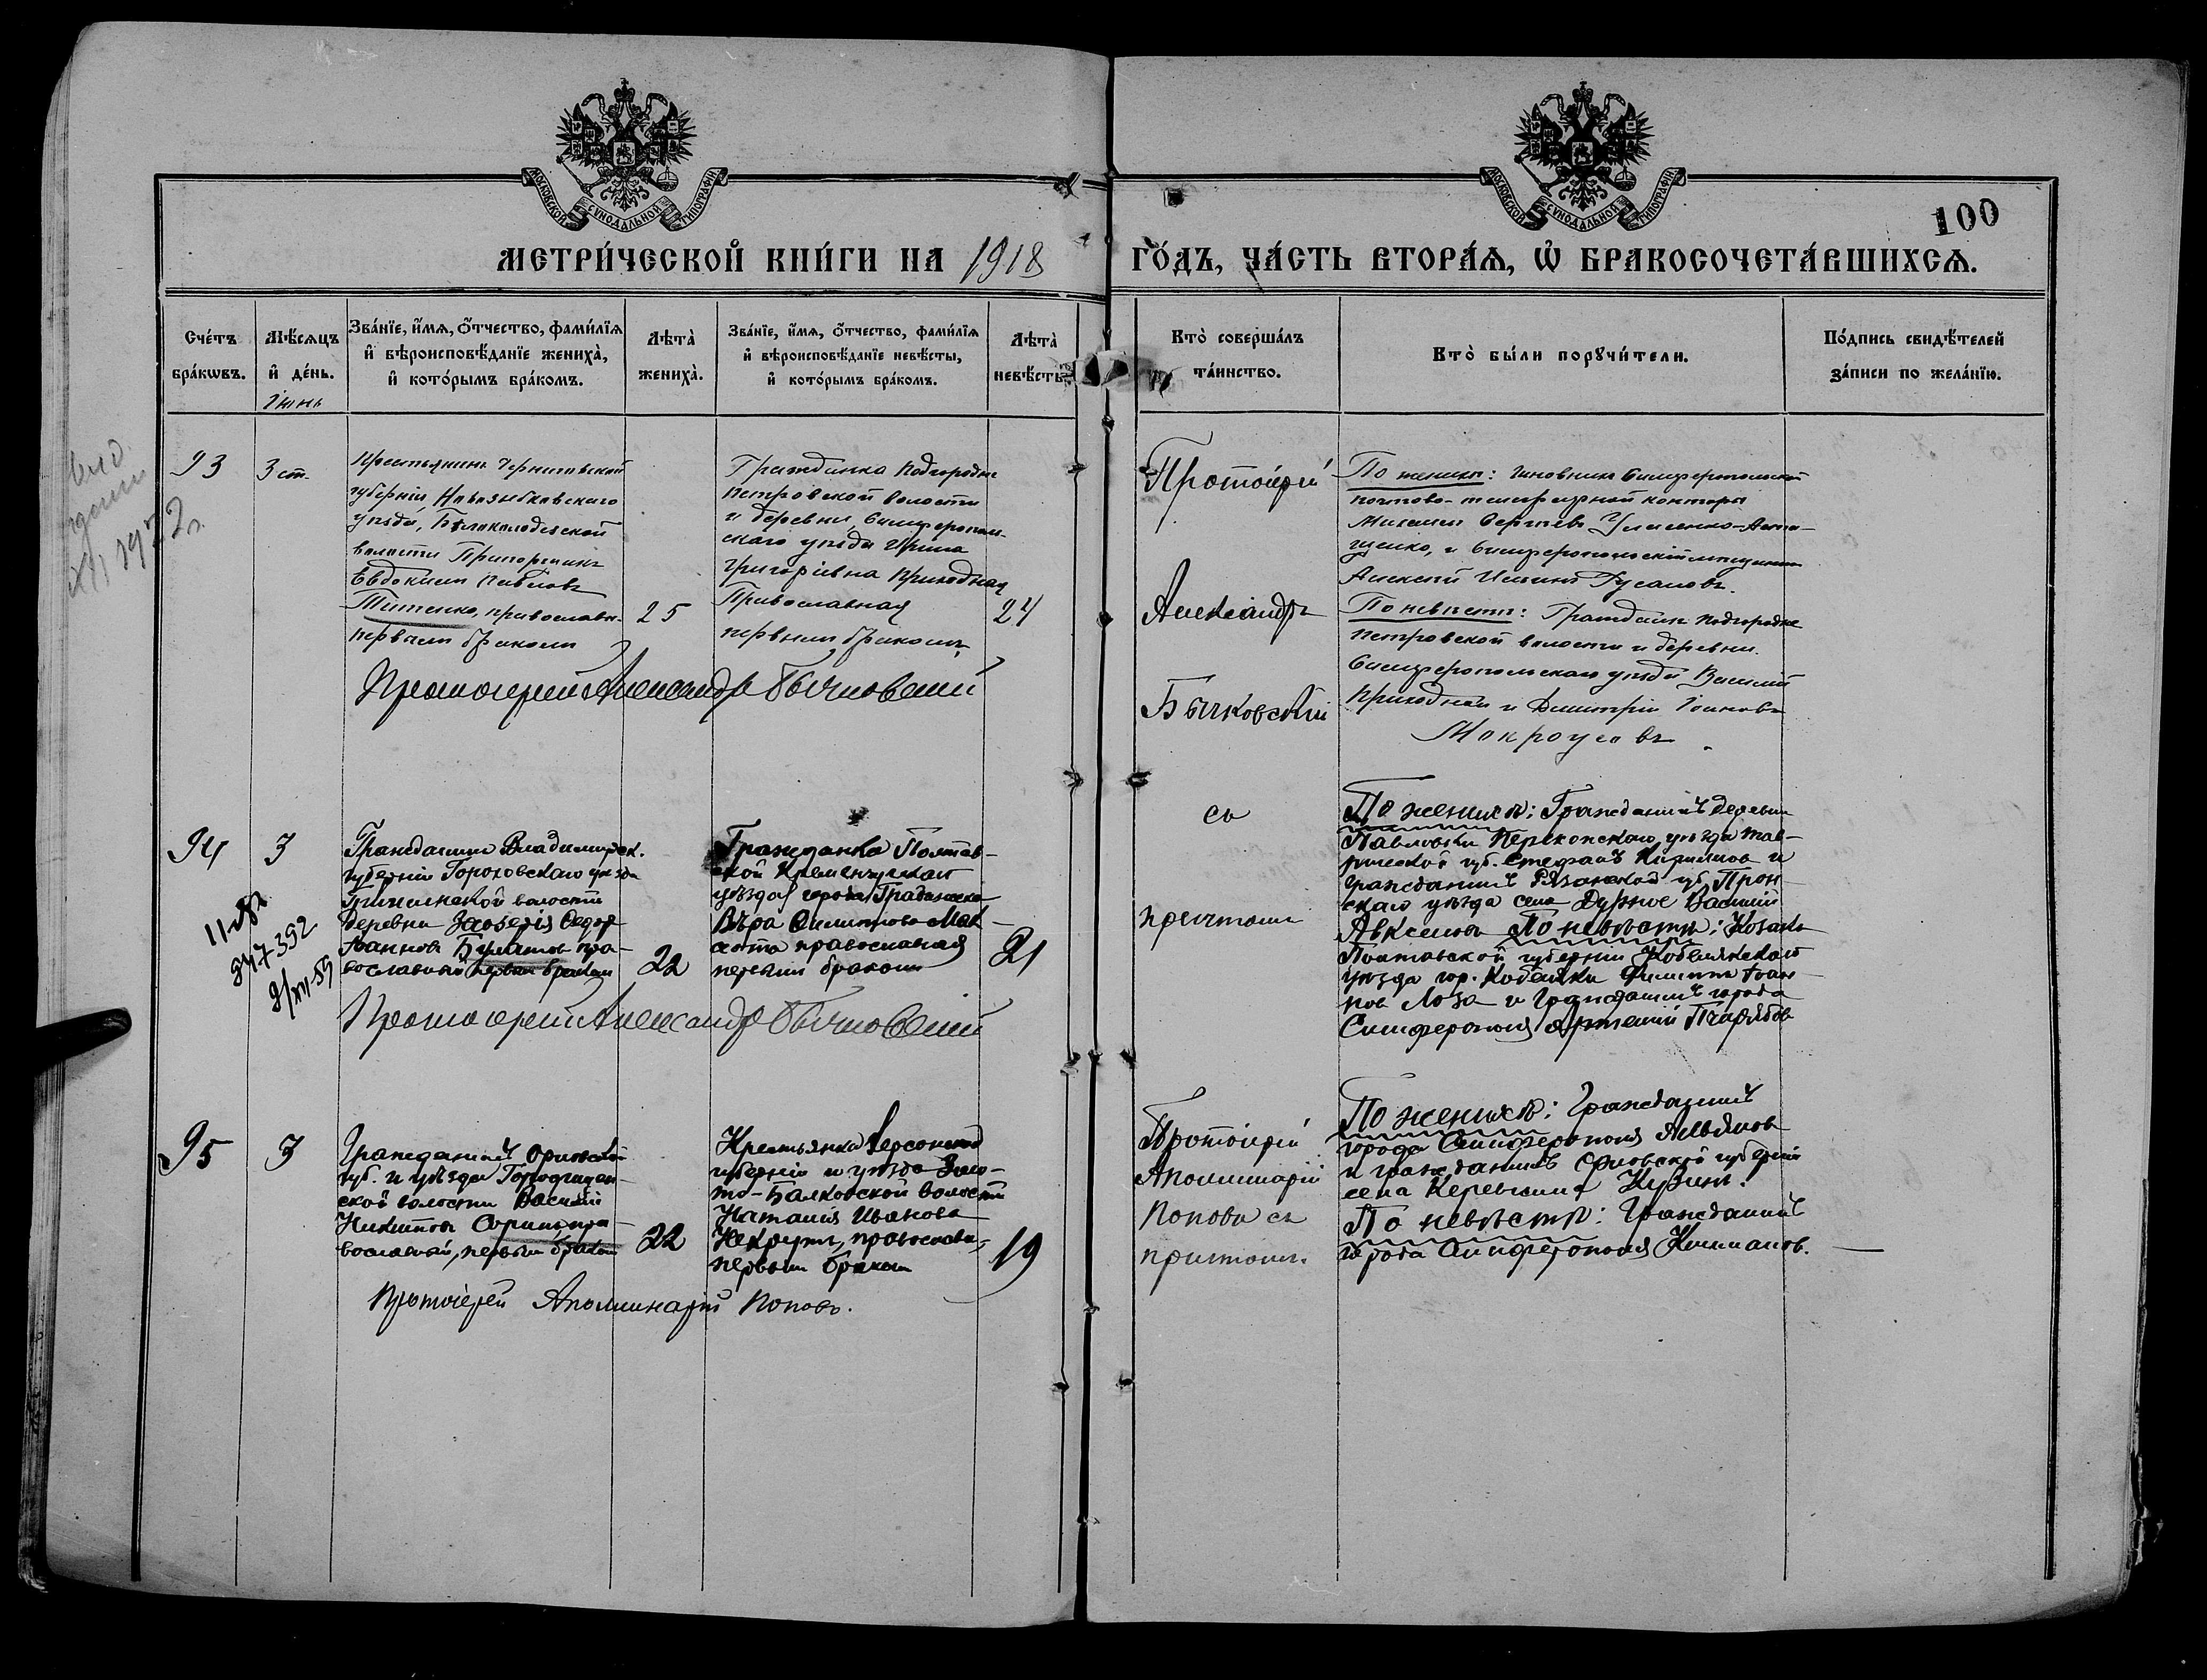 МОСКОВСКОЙ СѴНОДАЛЬНОЙ ТИПОГРАФІИ
МОСКОВСКОЙ СѴНОДАЛЬНОЙ ТИПОГРАФІИ
100
МЕТРИ́ЧЕСКОЙ КНИ́ГИ НА 1918 ГО́ДЪ, ЧА́СТЬ ВТОРА́Я, Ѡ БРАКОСОЧЕТА́ВШИХСЯ.
Сче́тъ бра́кѡвъ.
Мѣ́сяцъ и҆ де́нь.
Іюнь
Зва́нїе, и҆́мя, ѻ҆́тчество, фами́лїя
и҆ вѣроисповѣ́данїе жениха̀,
и҆ кото́рымъ бра́комъ.
Лѣта̀ жениха̀.
Зва́нїе, и҆́мя, ѻ҆́тчество, фами́лїя
и҆ вѣроисповѣ́данїе невѣ́сты,
и҆ кото́рымъ бра́комъ.
Лѣта̀ невѣ́сты.
Кто̀ соверша́лъ
та́инство.
Кто̀ бы́ли порꙋчи́тели.
По́дпись свидѣ́телей
за́писи по жела́нїю.
93
3 ст.
Крестьянинъ Черниговской
губерніи, Новозыбковскаго
уѣзда, Бѣлоколодезской
волости
Евдокимъ Павловъ
Титенко, православн.
первымъ бракомъ
25
Гражданка Подгородне
Петровской волости
и деревни, Симферополь-
скаго уѣзда Ирина
Григоріевна Приходная
Православная
первымъ бракомъ
24
Протоіерей Александръ Бычковскій
Протоіерей
Александръ
Бычковскій
съ
причтомъ
По женихѣ: Чиновникъ Симферопольской
почтово-телеграфной конторы
Михаилъ Сергѣевъ
и Симферопольскій мѣщанинъ
Алексѣй Ильинъ Гусаковъ.
По невѣстѣ: Гражданинъ Подгородне
Петровской волости и деревни
Симферопольскаго уѣзда Василій
Приходной и Димитрій Іоанновъ
Мокроусовъ.
94
3
347-392
2/XII-59
Гражданинъ Владимірск.
губерніи Гороховскаго уѣзда
Гришинской волости
деревни Заозерія Ѳедоръ
Іоанновъ Булатовъ пра-
вославный первымъ бракомъ
22
Гражданка Полтав-
ской Кременчугскаго
уѣзда города Градижска
Вѣра Филиппова Мак-
сюта православная
первымъ бракомъ
21
Протоіерей Александръ Бычковскій
По женихѣ: Гражданинъ деревни
Павловки Перекопскаго уѣзда Тав-
рической губ. Стефанъ Кирилловъ и
гражданинъ Рязанской губ. Прон-
скаго уѣзда села Дурное Василій
Авксеновъ По невѣстѣ: Козакъ
Полтавской губерніи Кобелякскаго
уѣзда гор. Кобеляки Филиппъ Іоан-
новъ Лоза и Гражданинъ города
Симферополя Артемій
95
3
Гражданинъ Орловской
губ. и уѣзда
ской волости Василій
Никитовъ Соринъ, пра-
вославный, первымъ бракомъ
22
Крестьянка Херсонской
губерніи и уѣзда Золо-
то-Балковской волости
Наталія Иванова
Некрутъ, православн.,
первымъ бракомъ
19
Протоіерей Аполлинарій Поповъ.
Протоіерей
Аполлинарій
Поповъ съ
причтомъ.
По женихѣ: Гражданинъ
города Симферополя
и гражданинъ Орловской губерніи
села
По невѣстѣ: Гражданинъ
города Симферополя